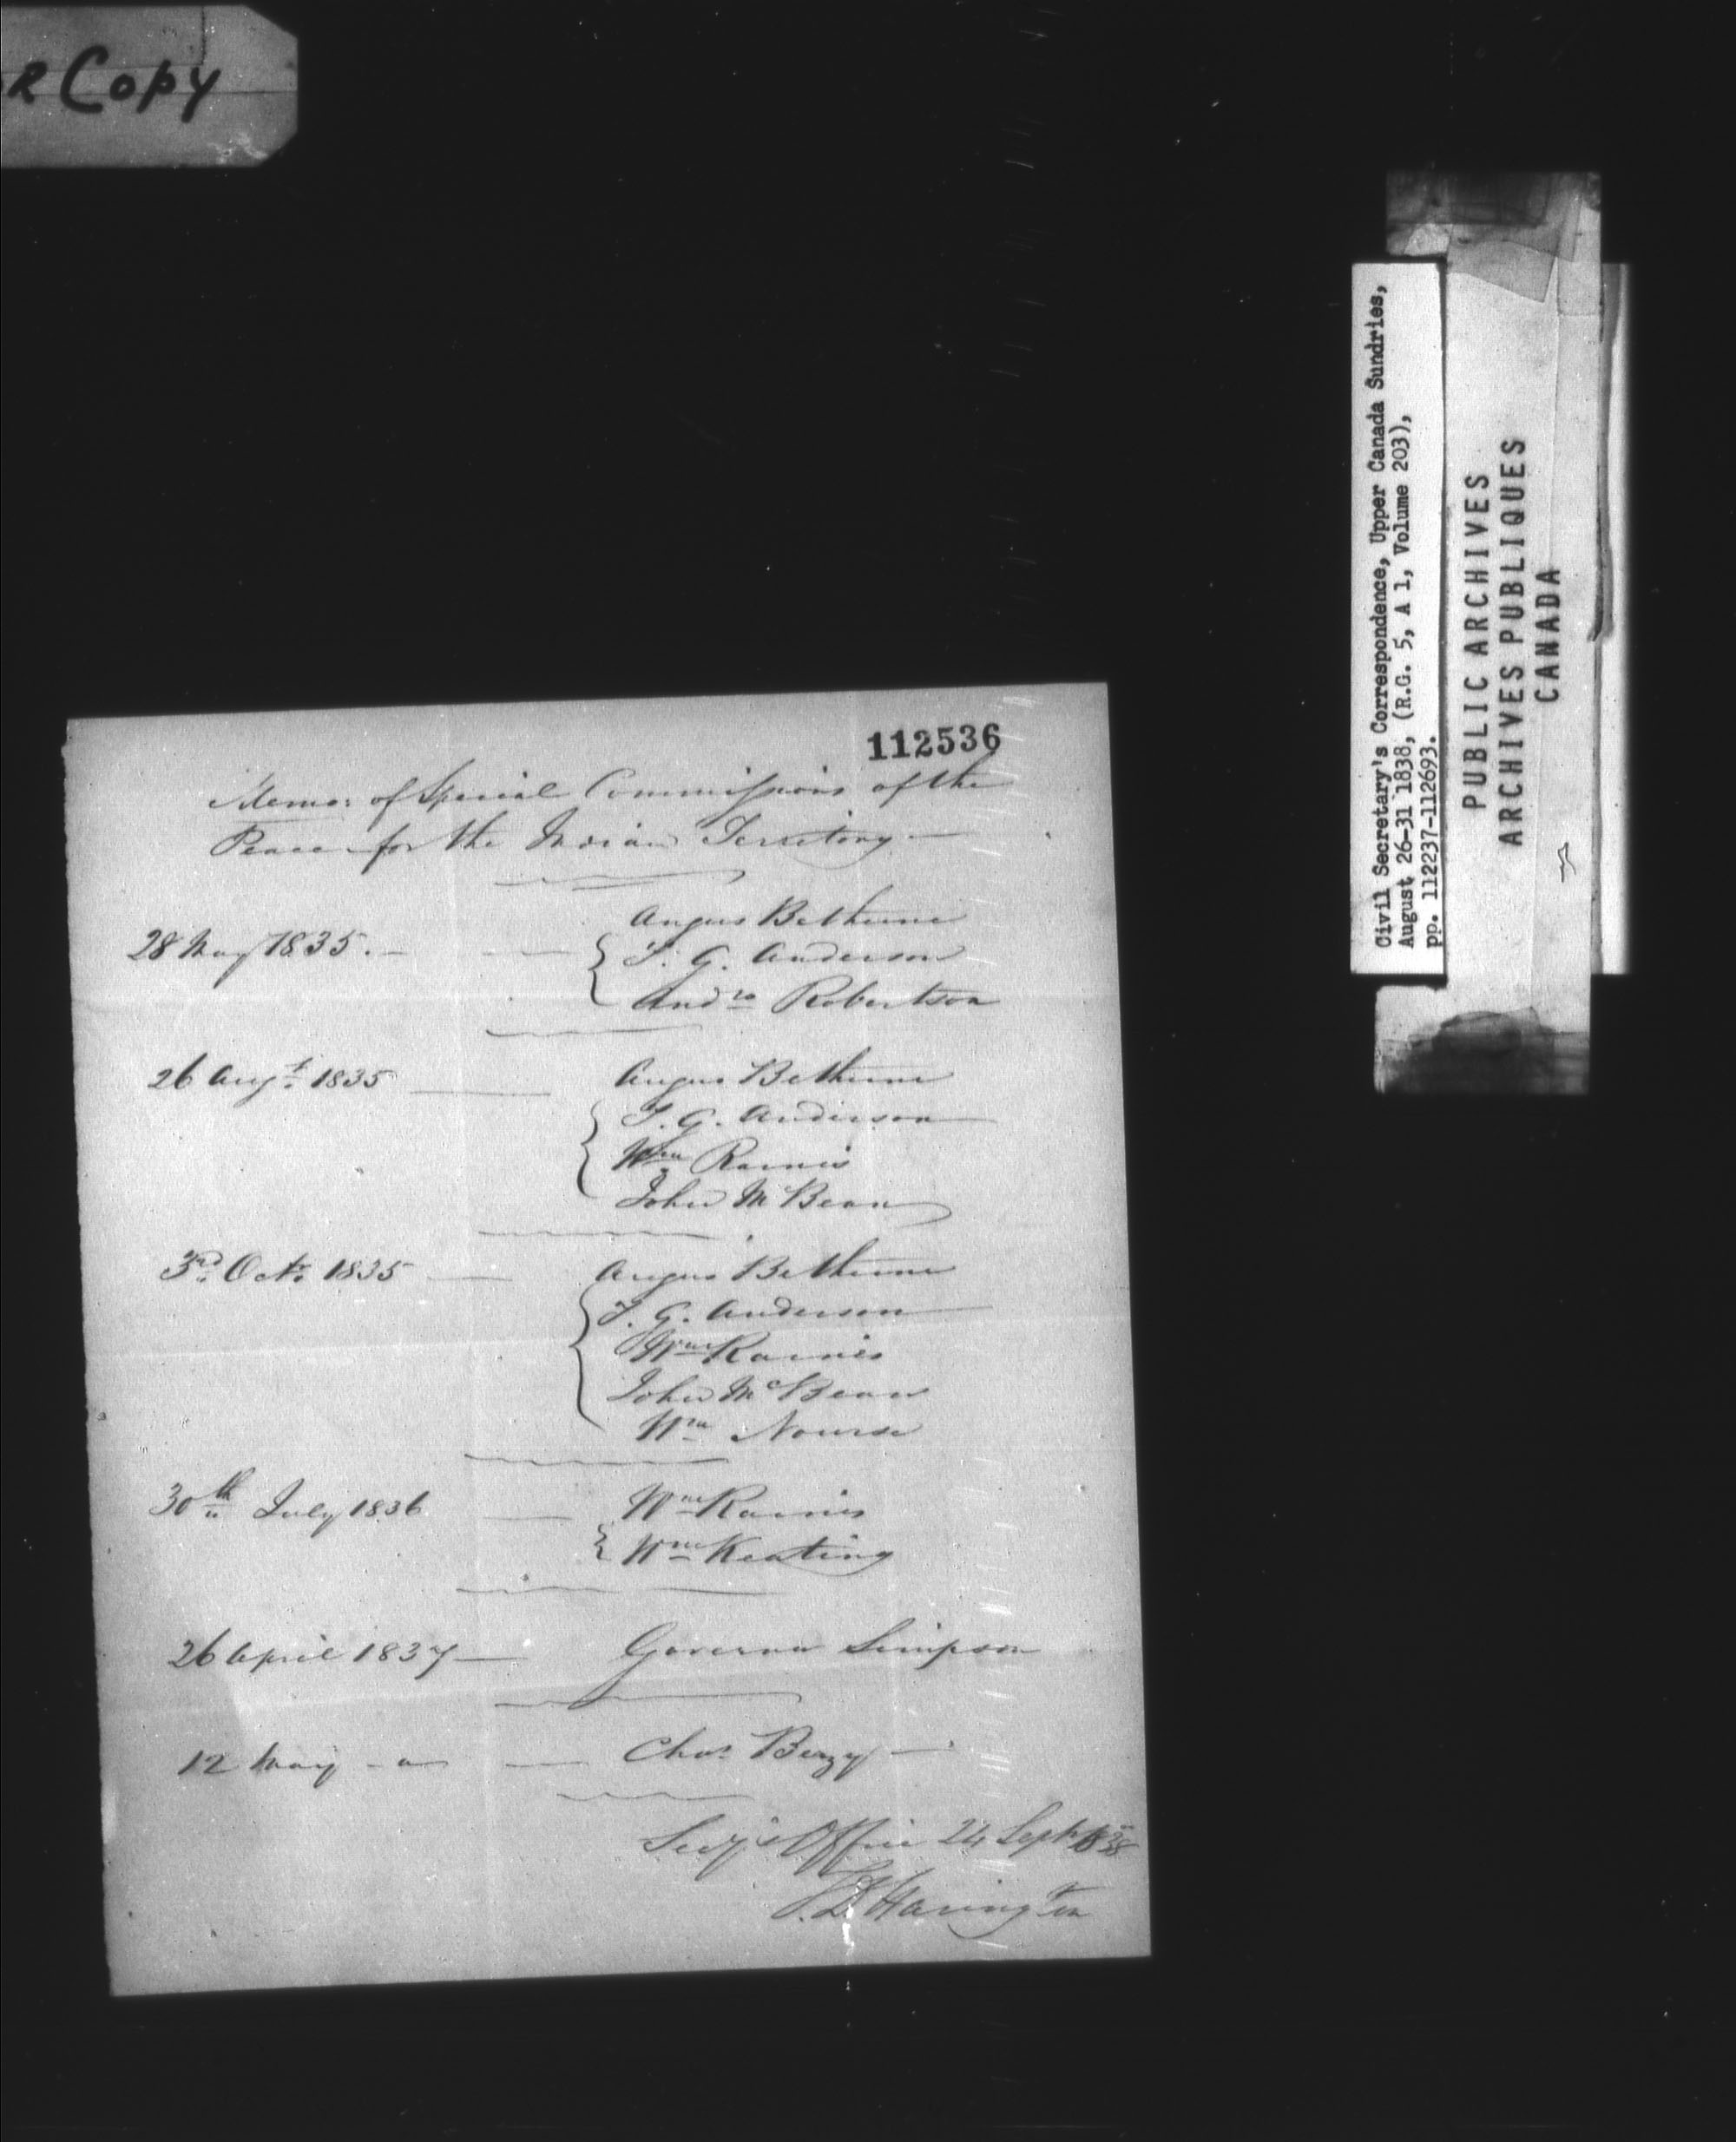 R Copy
112536
Memo: of Special Commissions of the
Peace for the Indian Territory
28 May 1835. Angus Bethune
T. G. Anderson
Andw Robertson
26 Augt. 1835 Angus Bethune
T. G. Anderson
Wm Rains
John McBean
3rd Octr. 1835 Angus Bethune
T. G. Anderson
Wm Rains
John McBean
Wm Nourse
30th July 1836 Wm Rains
Wm Keating
26 April 1837 Governor Simpson
12 May Chas Berzy
Secy's Office 24 Sept 1838
Harington
Civil Secretary's Correspondence, Upper Canada Sundries,
August 26-31 1838, (R.G. 5, A 1, Volume 203),
pp. 112237-112693.
PUBLIC ARCHIVES
ARCHIVES PUBLIQUES
CANADA